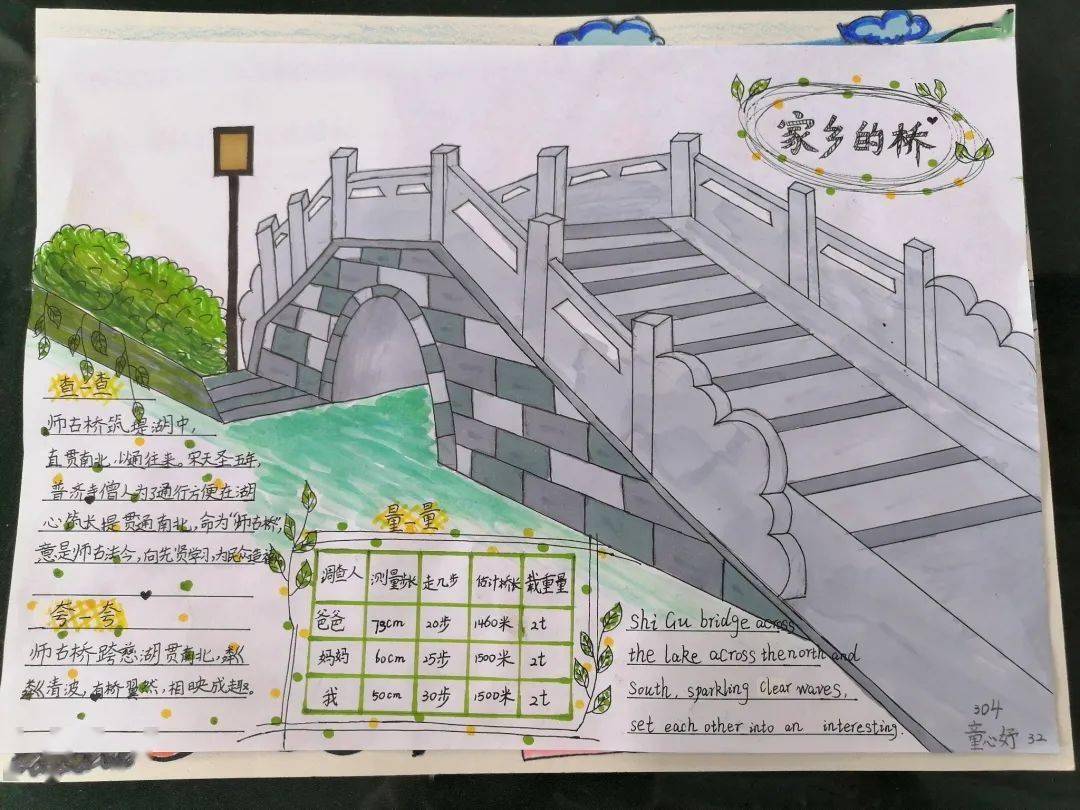 家乡的桥
查一查
师古桥筑提湖中，
直贯南北，以通往来。宋天圣五年，
普济寺僧人为了通行方便在湖
心筑长提贯通南北，命为“师古桥”，
意是师古法今，向先贤学习，为民众造福
夸一夸
师古桥跨慈湖贯南北，
清波，古桥翼然，相映成趣。
量一量
调查人 测量步长 走几步 估计桥长 载重量
爸爸 73cm 20步 1460米 2t
妈妈 60cm 25步 1500米 2t
我 50cm 30步 1500米 2t
Shi Gu bridge across
the lake across the north and
South, sparkling clear waves,
set each other into an interesting.
304
童心妤 32